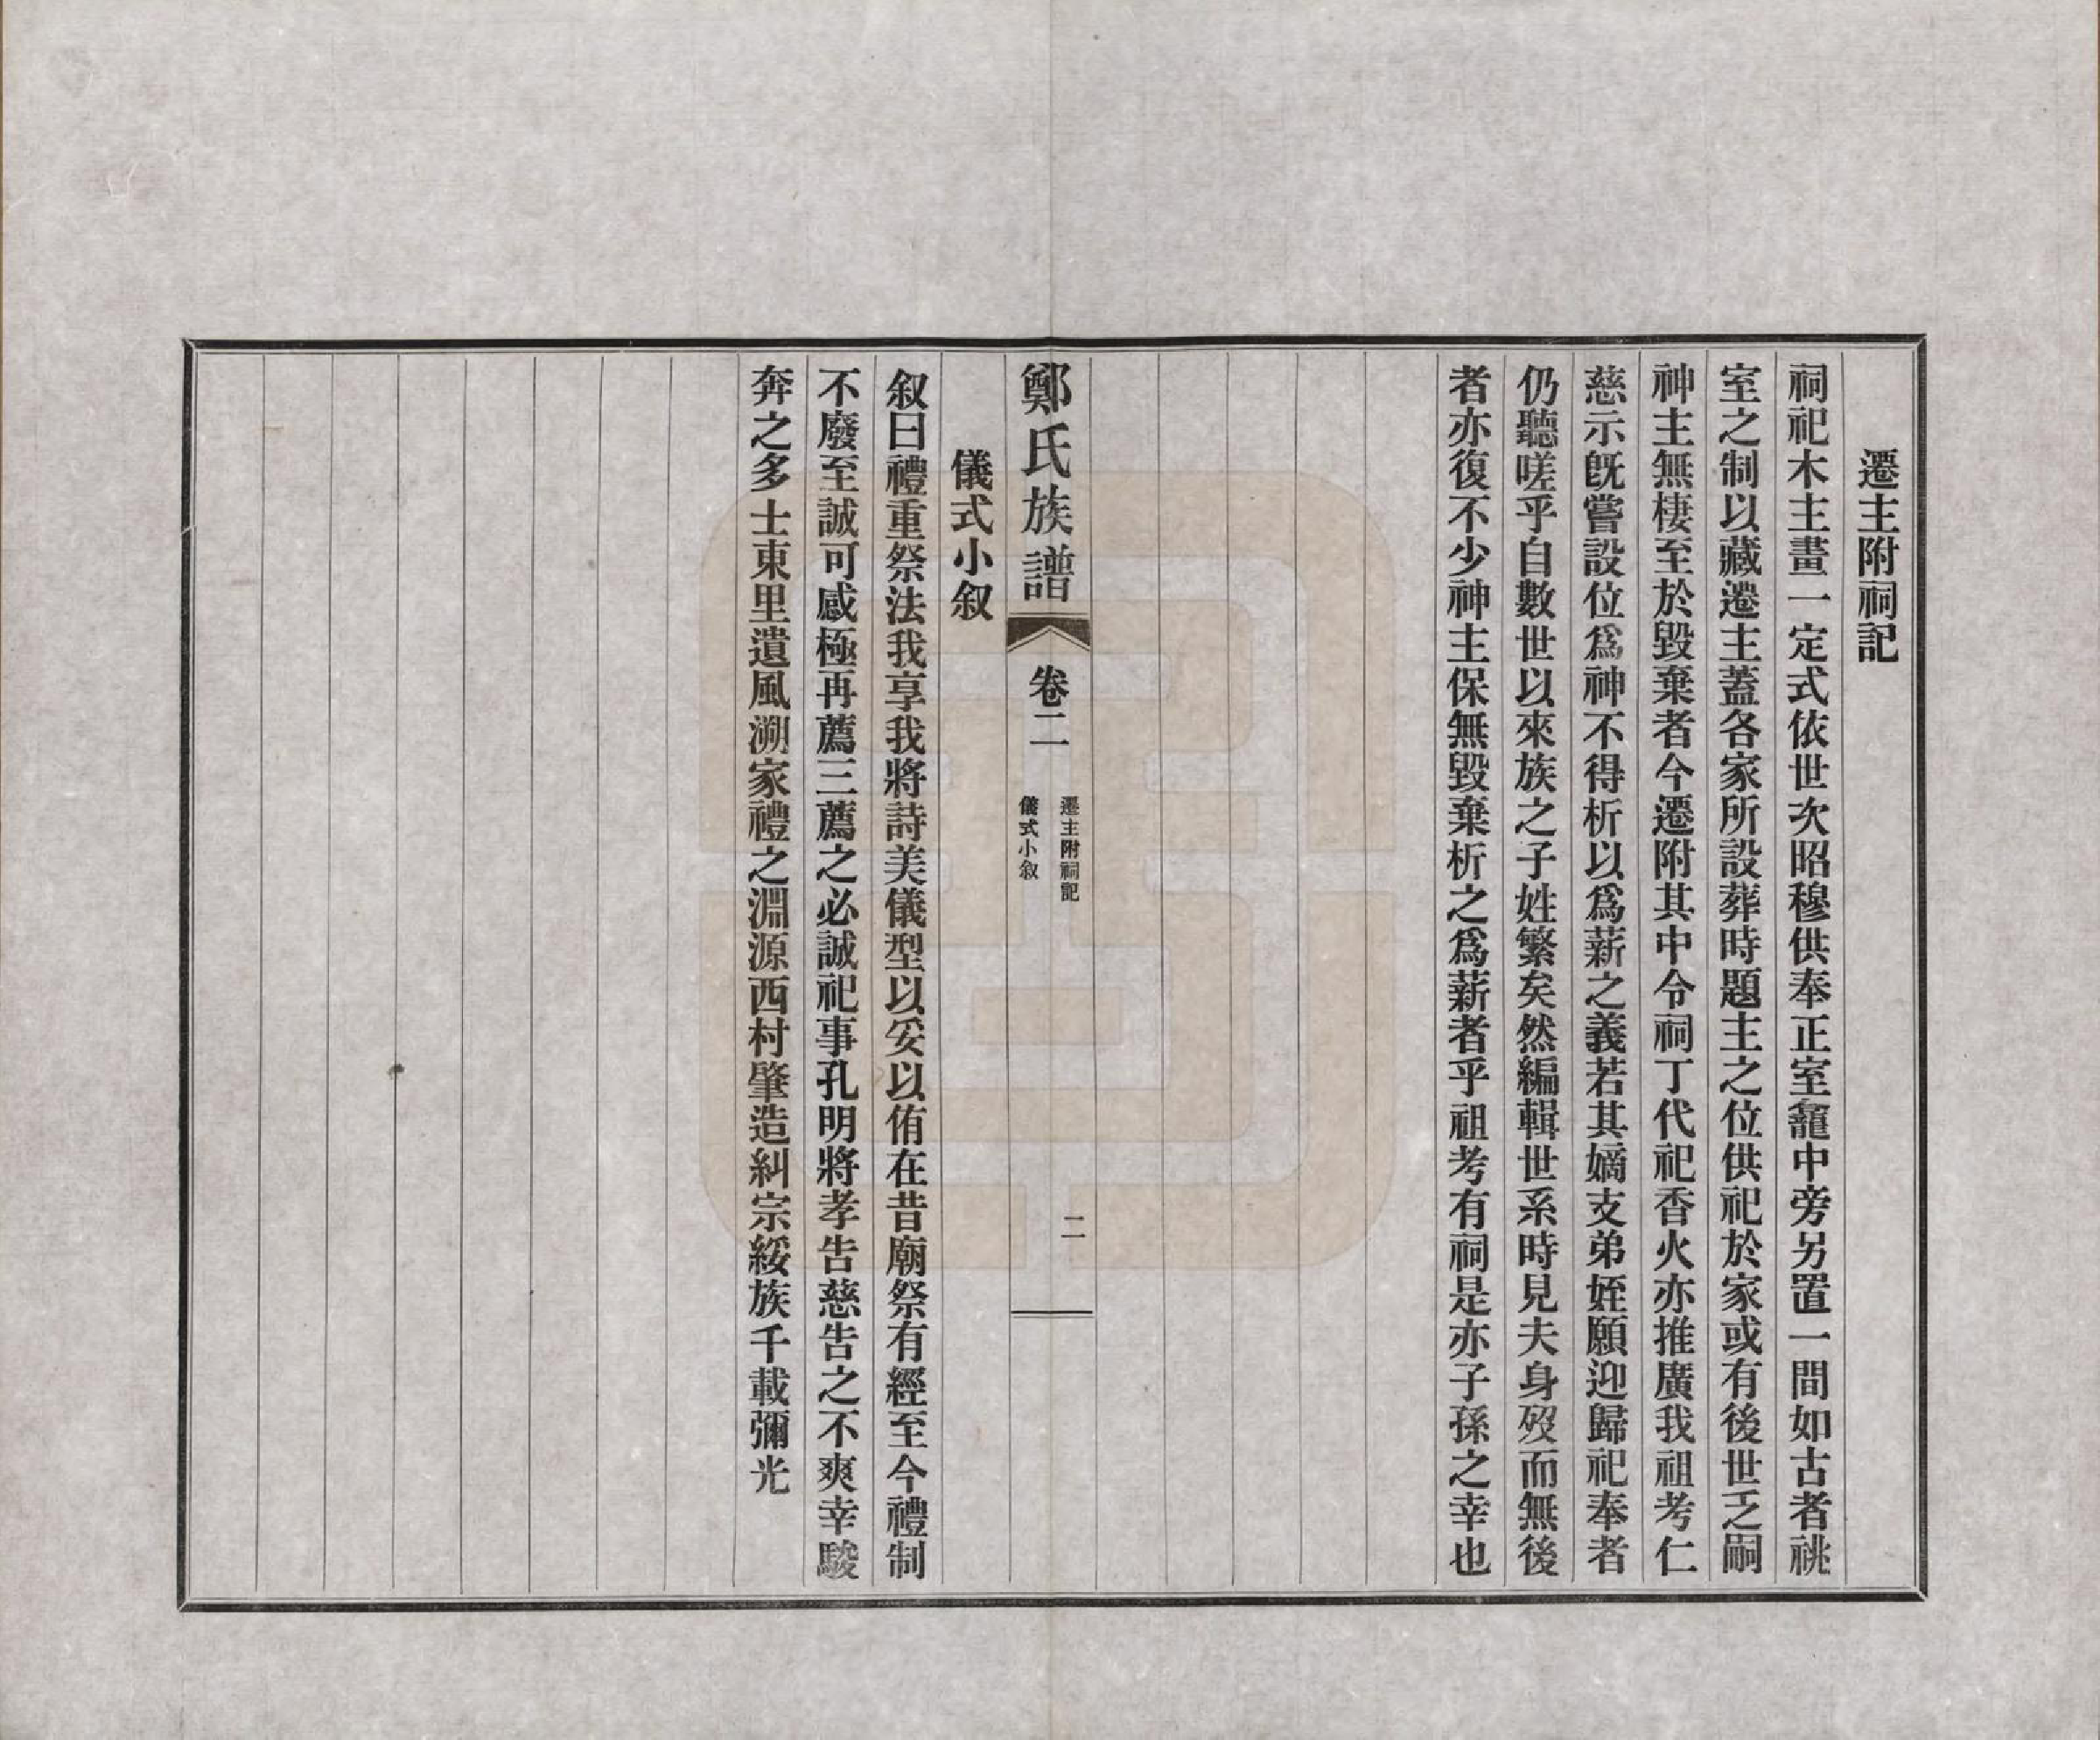 遷主附祠記
祠祀木主畫一定式依世次昭穆供奉正室龕中旁另置一間如古者祧
室之制以藏遷主蓋各家所設葬時題主之位供祀於家或有後世乏嗣
神主無棲至於毀棄者今遷附其中令祠丁代祀香火亦推廣我祖考仁
慈示旣嘗設位爲神不得析以爲薪之義若其嫡支弟姪願迎歸祀奉者
仍聽嗟乎自數世以來族之子姓繁矣然編輯世系時見夫身歿而無後
者亦復不少神主保無毀棄析之爲薪者乎祖考有祠是亦子孫之幸也
鄭氏族譜
卷二
遷主附祠記
儀式小叙
二
儀式小叙
叙曰禮重祭法我享我將詩美儀型以妥以侑在昔廟祭有經至今禮制
不廢至誠可感極再薦三薦之必誠祀事孔明將孝告慈告之不爽幸駿
奔之多士東里遺風溯家禮之淵源西村肇造糾宗綏族千載彌光